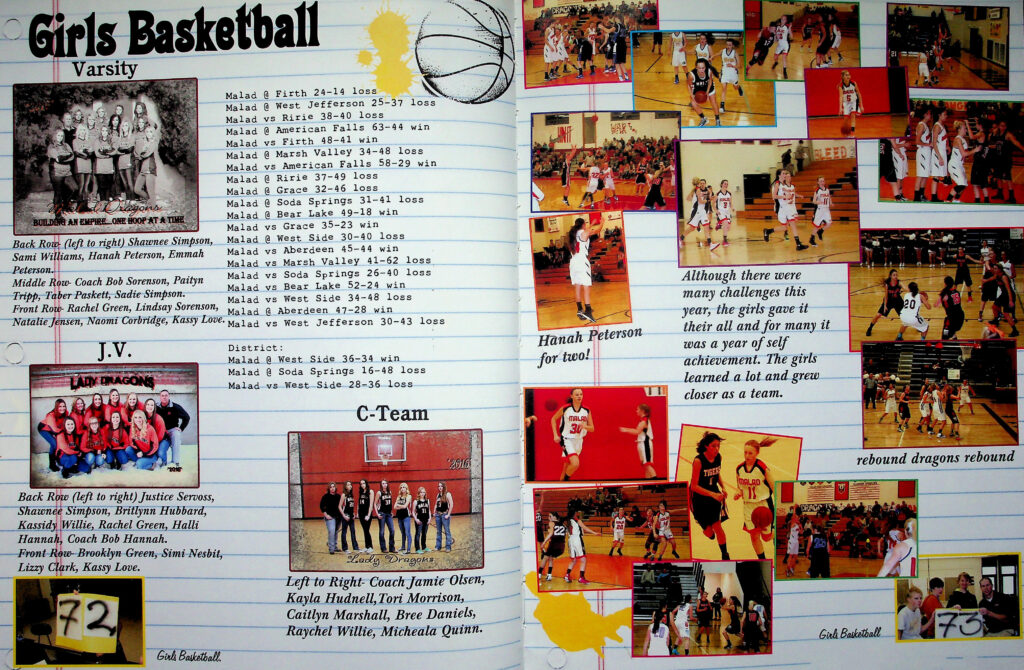 Girls Basketball
Varsity
Lady Dragons
BUILDING AN EMPIRE...ONE HOOP AT A TIME
Back Row- (left to right) Shawnee Simpson,
Sami Williams, Hanah Peterson, Emmah
Peterson.
Middle Row- Coach Bob Sorenson, Paityn
Tripp, Taber Paskett, Sadie Simpson.
Front Row- Rachel Green, Lindsay Sorenson,
Natalie Jensen, Naomi Corbridge, Kassy Love.
J.V.
LADY DRAGONS
Back Row (left to right) Justice Servoss,
Shawnee Simpson, Britlynn Hubbard,
Kassidy Willie, Rachel Green, Halli
Hannah, Coach Bob Hannah.
Front Row- Brooklyn Green, Simi Nesbit,
Lizzy Clark, Kassy Love.
72
Girls Basketball.
Malad @ Firth 24-14 loss
Malad @ West Jefferson 25-37 loss
Malad vs Ririe 38-40 loss
Malad @ American Falls 63-44 win
Malad vs Firth 48-41 win
Malad @ Marsh Valley 34-48 loss
Malad vs American Falls 58-29 win
Malad @ Ririe 37-49 loss
Malad @ Grace 32-46 loss
Malad @ Soda Springs 31-41 loss
Malad @ Bear Lake 49-18 win
Malad vs Grace 35-23 win
Malad @ West Side 30-40 loss
Malad vs Aberdeen 45-44 win
Malad vs Marsh Valley 41-62 loss
Malad vs Soda Springs 26-40 loss
Malad vs Bear Lake 52-24 win
Malad vs West Side 34-48 loss
Malad @ Aberdeen 47-28 win
Malad vs West Jefferson 30-43 loss
District:
Malad @ West Side 36-34 win
Malad @ Soda Springs 16-48 loss
Malad vs West Side 28-36 loss
C-Team
2015
Lady Dragons
Left to Right- Coach Jamie Olsen,
Kayla Hudnell,Tori Morrison,
Caitlyn Marshall, Bree Daniels,
Raychel Willie, Micheala Quinn.
Hanah Peterson
for two!
Although there were
many challenges this
year, the girls gave it
their all and for many it
was a year of self
achievement. The girls
learned a lot and grew
closer as a team.
20
rebound dragons rebound
MALAD
30
TIGERS
MALAD
11
22
Girls Basketball
73